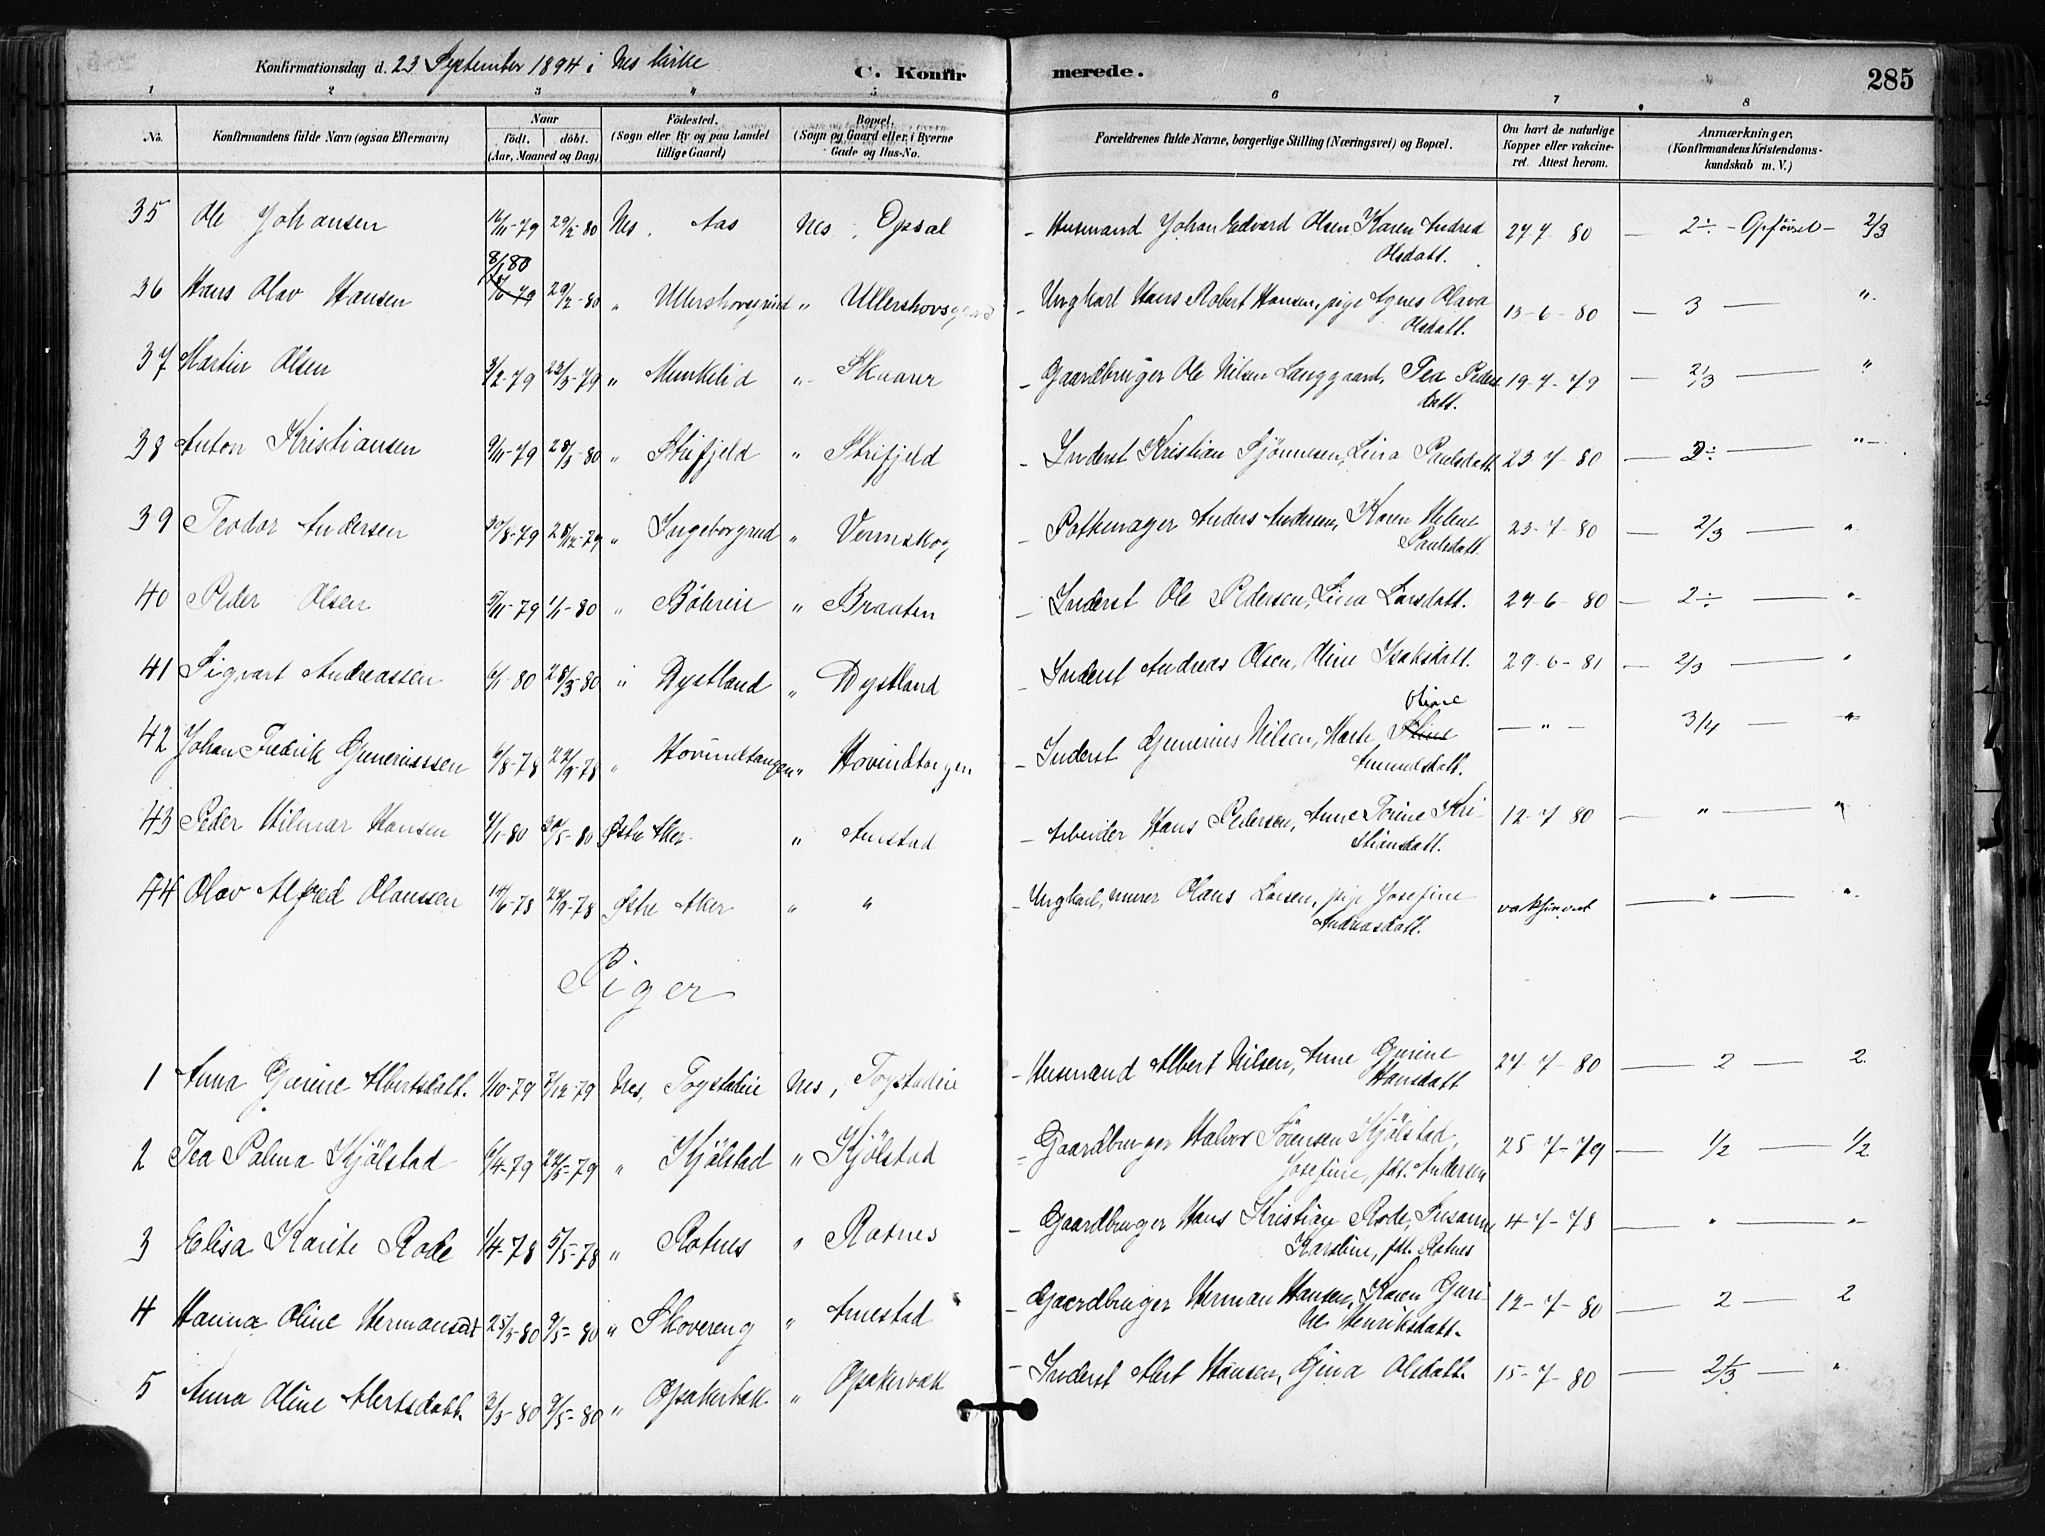 Konfirmationsdag d. 23 September 1894 i Nes kirke C. Konfirmerede. 285
1 2 3 4 5 6 7 8
No. Konfirmandens fulde Navn (ogsaa Efternavn) Naar født. døbt. (Aar, Maaned og Dag) Fødested. (Sogn eller By og paa Landet tillige Gaard) Bopæl. (Sogn og Gaard eller, i Byerne Gade og Hus-No. Forældrenes fulde Navne, borgerlige Stilling (Næringsvei) og Bopæl. Om havt de naturlige Kopper eller vakcineret. Attest herom. Anmærkninger. (Konfirmandens Kristendomskundskab m. V.)
35 Ole Johansen 16/11-79 29/2-80 Nes, Aas Nes, Opsal - Husmand Johan Edvard Olsen, Karen Andrea Olsdatt. 27-7-80 — 2÷ - Opførsel - 2/3
36 Hans Olav Hansen 8/1 80 29/2-80 " Ullershovseiend " Ullershovs - Ungkarl Hans Robert Hansen, pige Agnes Olava Olsdatt. 13-6-80 — 3 — "
37 Martin Olsen 3/2-79 23/3-79 " Munkelid " Skaarer - Gaardbruger Ole Nilsen Langgaard, Tea Pedersdatt. 19-7-79 — 2/3 — "
38 Anton Kristiansen 9/11-79 28/3-80 " Skifjeld " Skrifjeld - Inderst Kristian Sjønnesen, Lina Paulsdatt. 23-7-80 — 2÷ — "
39 Teodor Andersen 30/8-79 28/12-79 " Ingeborgrud " Vormskog - Potkemager Anders Andersen, Karen Helene Paulsdatt. 23-7-80 — 2/3 — "
40 Peder Olsen 5/11-79 1/1-80 " Bølereie " Braaten - Inderst Ole Pedersen, Lina Larsdatt. 29-6-80 — 2÷ — "
41 Sigvart Andreassen 6/1-80 28/3-80 " Dystland " Dystland - Inderst Andreas Olsen, Oline Isaksdatt. 29-6-81 — 2/3 — "
42 Johan Fredrik Guneriussen 6/8-78 22/9-78 " Hovindtangen " Hovindtangen - Inderst Gunerius Nilsen, Marte Oline Amundsdatt. — " — 3/4 — "
43 Peder Hilmar Hansen 4/1-80 30/5-80 Østre Aker " Aurstad - Arbeider Hans Pedersen, Anne Torine Kristiansdatt. 12-7-80 — " — "
44 Olav Alfred Olaussen 14/6-78 22/9-78 Østre Aker " " - Ungkarl, murer Olaus Larsen, pige Josefine Andreasdatt. vaksineret — " — "
Piger
1 Anna Gurine Albertsdatt. 1/10-79 7/12-79 Nes, Togstadeie Nes, Togstadeie - Husmand Albert Nilsen, Anne Gurine Hansdatt 27-7-80 — 2 — 2
2 Tea Palma Kjølstad 6/4-79 22/5-79 " Kjølstad " Kjølstad - Gaardbruger Halvor Sørensen Kjølstad, Josefine, fdt. Andersen 25-7-79 — 1/2 — 1/2
3 Elisa Karete Rode 1/4-78 5/5-78 " Rotnes " Rotnes - Gaardbruger Hans Kristian Rode, Susanne Karoline, fdt. Rotnes 4-7-78 — " — "
4 Hanna Oline Hermansdt 25/3-80 9/5-80 " Skovereng " Arnestad - Gaardbruger Herman Hansen, Karen Gurine Henriksdatt. 12-7-80 — 2 — 2
5 Anna Oline Albertsdatt. 2/3-80 9/5-80 " Opakerbak " Opakervak - Inderst Albert Hansen, Gina Olsdatt. 15-7-80 — 2/3 — "